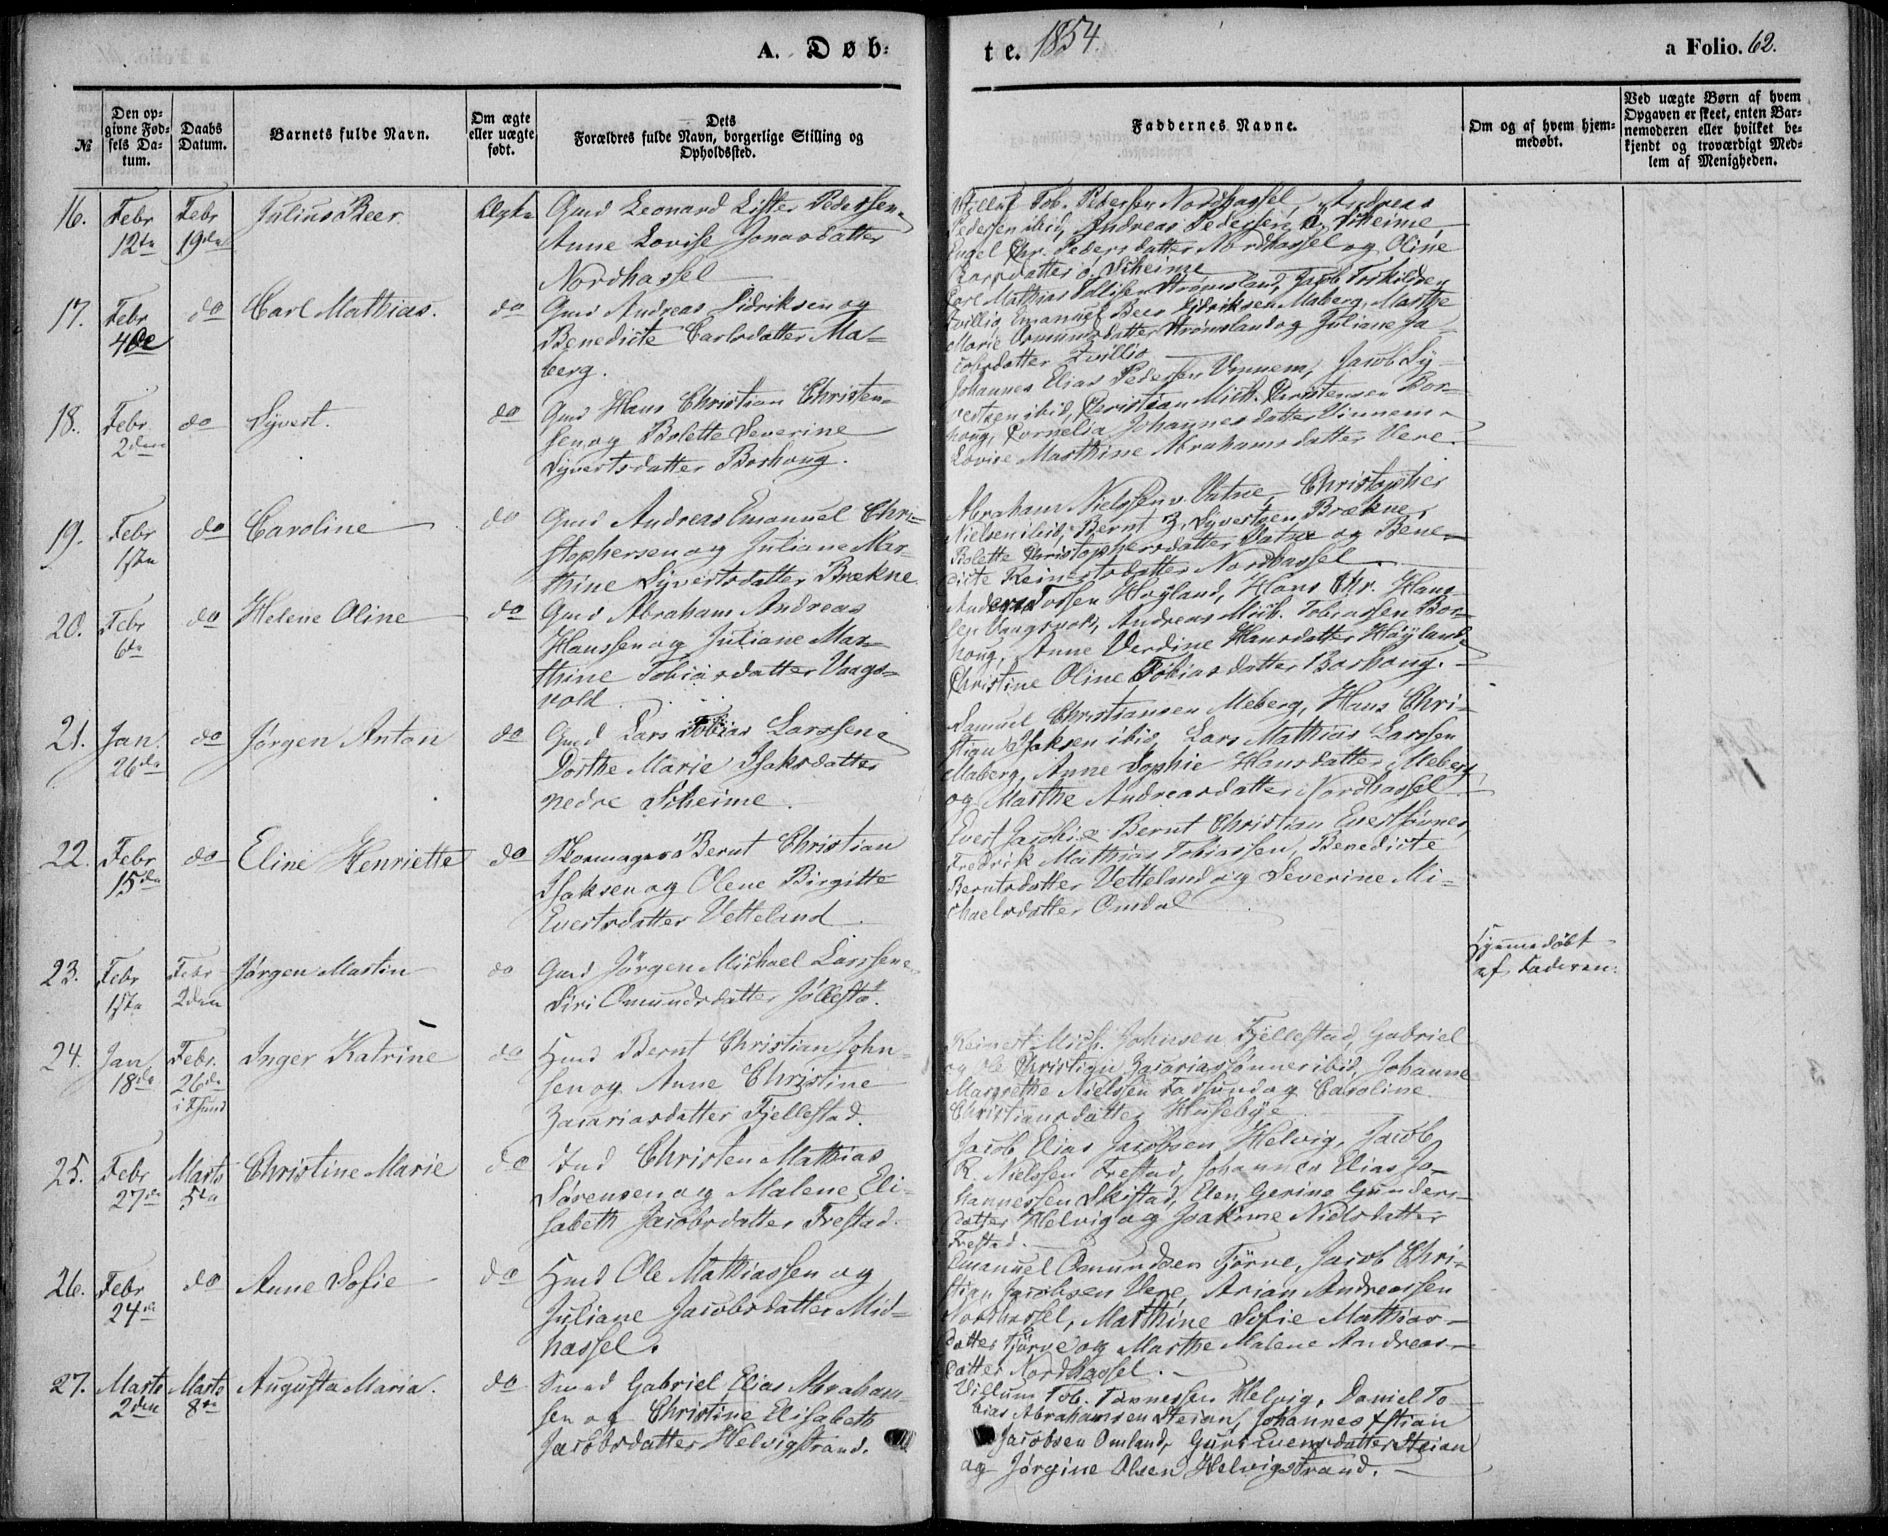 A. Døb-
te. 1854.
a Folio. 62.
№
Den op-
givne Fød-
sels Da-
tum.
Daabs
Datum.
Barnets fulde Navn.
Om ægte
eller uægte
født.
Dets
Forældres fulde Navn, borgerlige Stilling og
Opholdssted.
Faddernes Navne.
Om og af hvem hjem-
medøbt.
Ved uægte Børn af hvem
Opgaven er skeet, enten Bar-
nemoderen eller hvilket be-
kjendt og troværdigt Med-
lem af Menigheden.
16. Febr 12te Febr 19de Julius Beer Ægte Gmd Leonard Lister Pedersen
Anne Lovise Jonasdatter
Nordhassel
Tob. Pedersen Nordhassel, Andreas
Pedersen ibid, Andreas Pedersen ö. Skeime,
Engel Chr. Pedersdatter Nordhassel og Oline
datter ö. Skeime
17. Febr 4de do Carl Mathias. do Gmd Andreas Didriksen og
Benedicte Carlsdatter Ma-
berg.
Carl Mathias Strømsland, Jacob Torkildsen
Emanuel Beer Didriksen Maberg, Marthe
Marie Osmundsdatter Strømsland og Juliane Ja-
cobsdatter
18. Febr. 2den do Syvert. do Gmd Hans Christian Christen-
sen og Bolette Severine
Syvertsdatter Borhoug.
Johannes Elias Pedersen Vinnem, Jacob Sy-
vertsen ibid, Christian Mich. Christensen Bor-
houg, Cornelia Johannesdatter Vinnem
Lovise Marthine Abrahamsdatter Vere.
19. Febr 1ste do Caroline do Gmd Andreas Emanuel Chri-
stophersen og Juliane Mar-
thine Syvertsdatter Brækne
Abraham Nielssen Vatne, Christopher
Nielsen ibid, Bernt B. Syvertsen Brækne,
Bolette Christophersdatter Vatne og Bene-
dicte Reinertsdatter Nordhassel
20. Febr 6te do Helene Oline do Gmd Abraham Andreas
Hanssen og Juliane Mar-
thine Tobiasdatter Vaags-
vold.
Anders Tossen Høyland, Hans Chr. Hans-
sen Vaagsvold, Andreas Mich. Tobiassen Bor-
houg, Anne Verdine Hansdatter Høyland
Christine Oline Tobiasdatter Borhoug.
21. Jan. 26de do Jørgen Anton do Gmd Lars Tobias Larssen
Dorthe Marie Isaksdatter
nedre Skeime.
Samuel Christiansen Meberg, Hans Chri-
stian Isaksen ibid, Lars Mathias Larssen
Maberg, Anne Sophie Hansdatter Meberg
og Marthe Andreasdatter Nordhassel
22. Febr 15de do Eline Henriette do Skomager Bernt Christian
Isaksen og Olene Birgitte
Evertsdatter Vetteland.
Evert Jacob og Bernt Christian Evertsønner
Fredrik Mathias Tobiassen, Benedicte
Berntsdatter Vetteland og Severine Mi-
chaelsdatter Omdal
23. Febr 1ste Febr 2den Jørgen Martin do Gmd Jörgen Michael Larssen
Siri Omundsdatter Jöllestø.
Hjemmedöbt
af Faderen.
24. Jan 18de Febr. 26de i Fsund Inger Katrine do Hmd Bernt Christian John-
sen og Anne Christine
Zacariasdatter Fjellestad.
Reinert Mich. Johnsen Fjellestad, Gabriel
og Ole Christian Zacariassønner ibid, Johanne
Margrethe Nielssen Farsund og Caroline
Christiansdatter Husebye.
25. Febr 27de Marts 5te Christine Marie do Ind Christen Mathias
Sørensen og Malene Eli-
sabeth Jacobsdatter Frestad.
Jacob Elias Jacobsen Helvig, Jacob
R. Nielssen Frestad, Johannes Elias Jo-
hannessen Skistad, Elen Gerine Gunders-
datter Helvig og Joakime Nielsdatter
Frestad.
26. Febr 24de do Anne Sofie do Hmd Ole Mathiassen og
Juliane Jacobsdatter Mid-
hassel.
Emanuel Omundsen Tjörve, Jacob Chri-
stian Jacobsen Vere, Arian Andreassen
Nordhassel, Marthine Sofie Mathias-
datter Tjörve og Marthe Malene Andreas-
datter Nordhassel.
27. Marts 2den Marts 8de Augusta Maria. do Smed Gabriel Elias Abraham-
sen og Christine Elisabeth
Jacobsdatter Helvigstrand.
Villum Tob. Tønnessen Helvig, Daniel To-
bias Abrahamsen Steian, Johannes Xstian
Jacobsen Omland, Guri Evensdatter Steian
og Jörgine Olsen Helvigstrand.